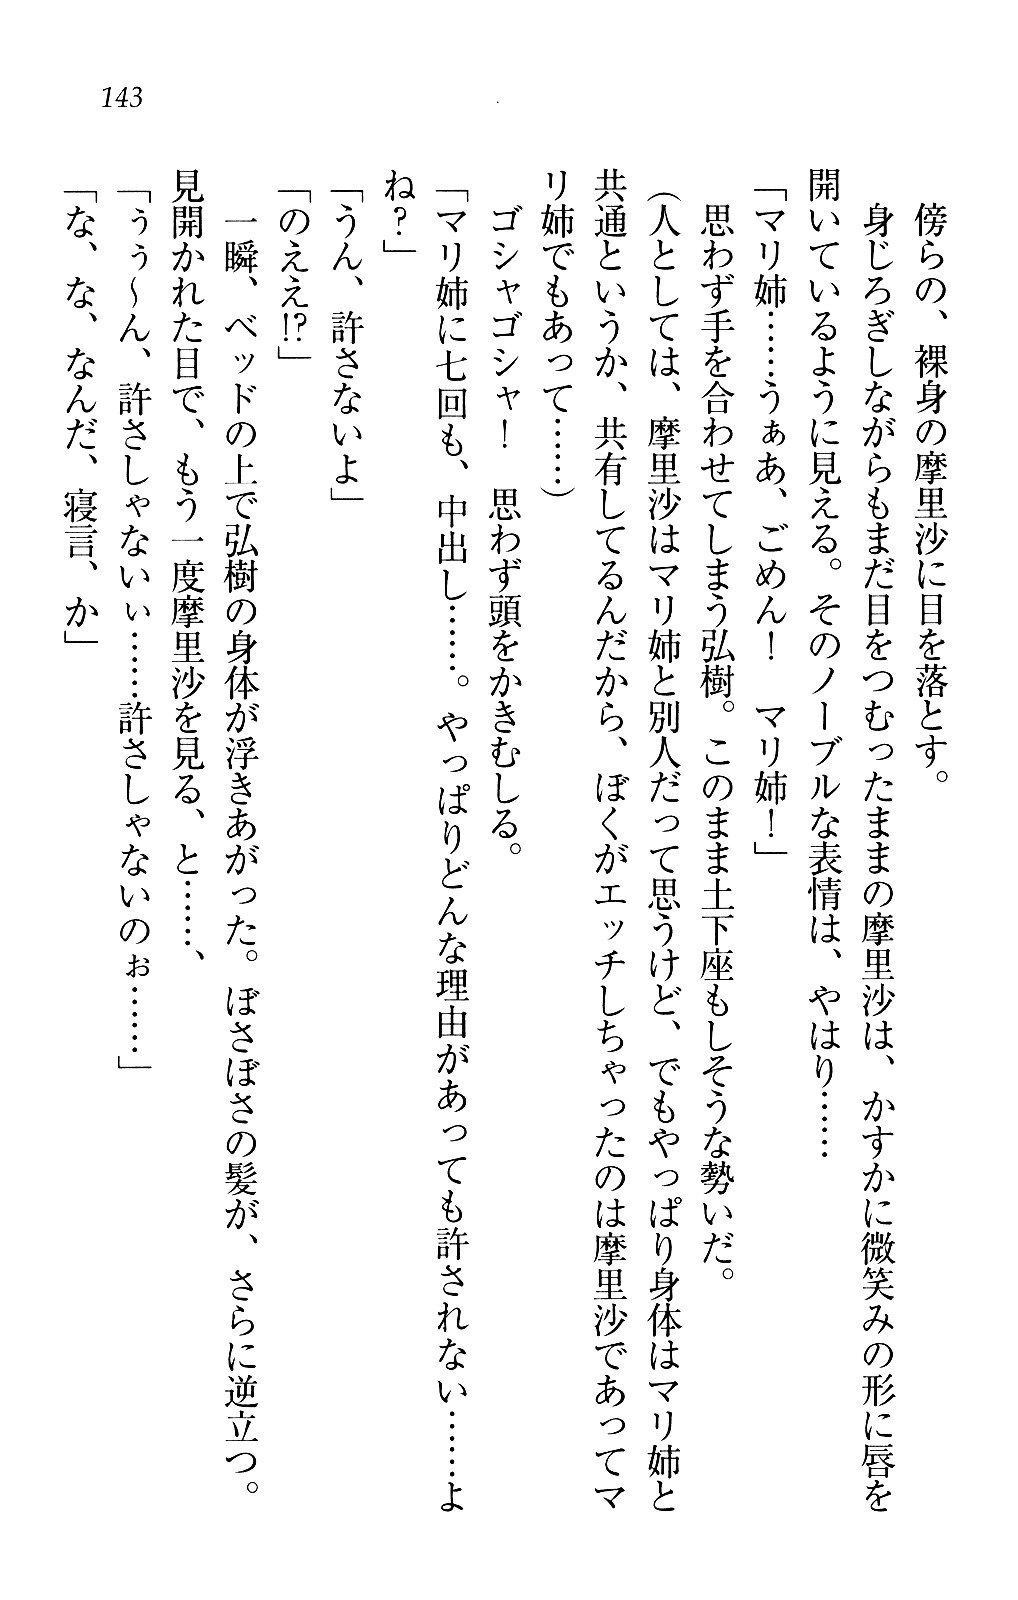 143
傍らの、裸身の摩里沙に目を落とす。
身じろぎしながらもまだ目をつむったままの摩里沙は、かすかに微笑みの形に唇を
開いているように見える。そのノーブルな表情は、やはり……
「マリ姉……うぁあ、ごめん！　マリ姉！」
思わず手を合わせてしまう弘樹。このまま土下座もしそうな勢いだ。
（人としては、摩里沙はマリ姉と別人だって思うけど、でもやっぱり身体はマリ姉と
共通というか、共有してるんだから、ぼくがエッチしちゃったのは摩里沙であってマ
リ姉でもあって……）
ゴシャゴシャ！　思わず頭をかきむしる。
「マリ姉に七回も、中出し……。やっぱりどんな理由があっても許されない……よ
ね？」
「うん、許さないよ」
「のええ!?」
一瞬、ベッドの上で弘樹の身体が浮きあがった。ぼさぼさの髪が、さらに逆立つ。
見開かれた目で、もう一度摩里沙を見る、と……、
「ぅぅ～ん、許さしゃないぃ……許さしゃないのぉ……」
「な、な、なんだ、寝言、か」